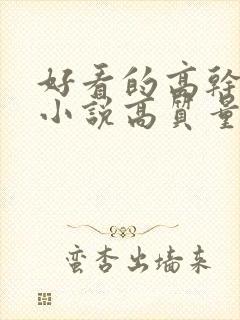 好看的高幹
小說高質量
蛮杏出墙来